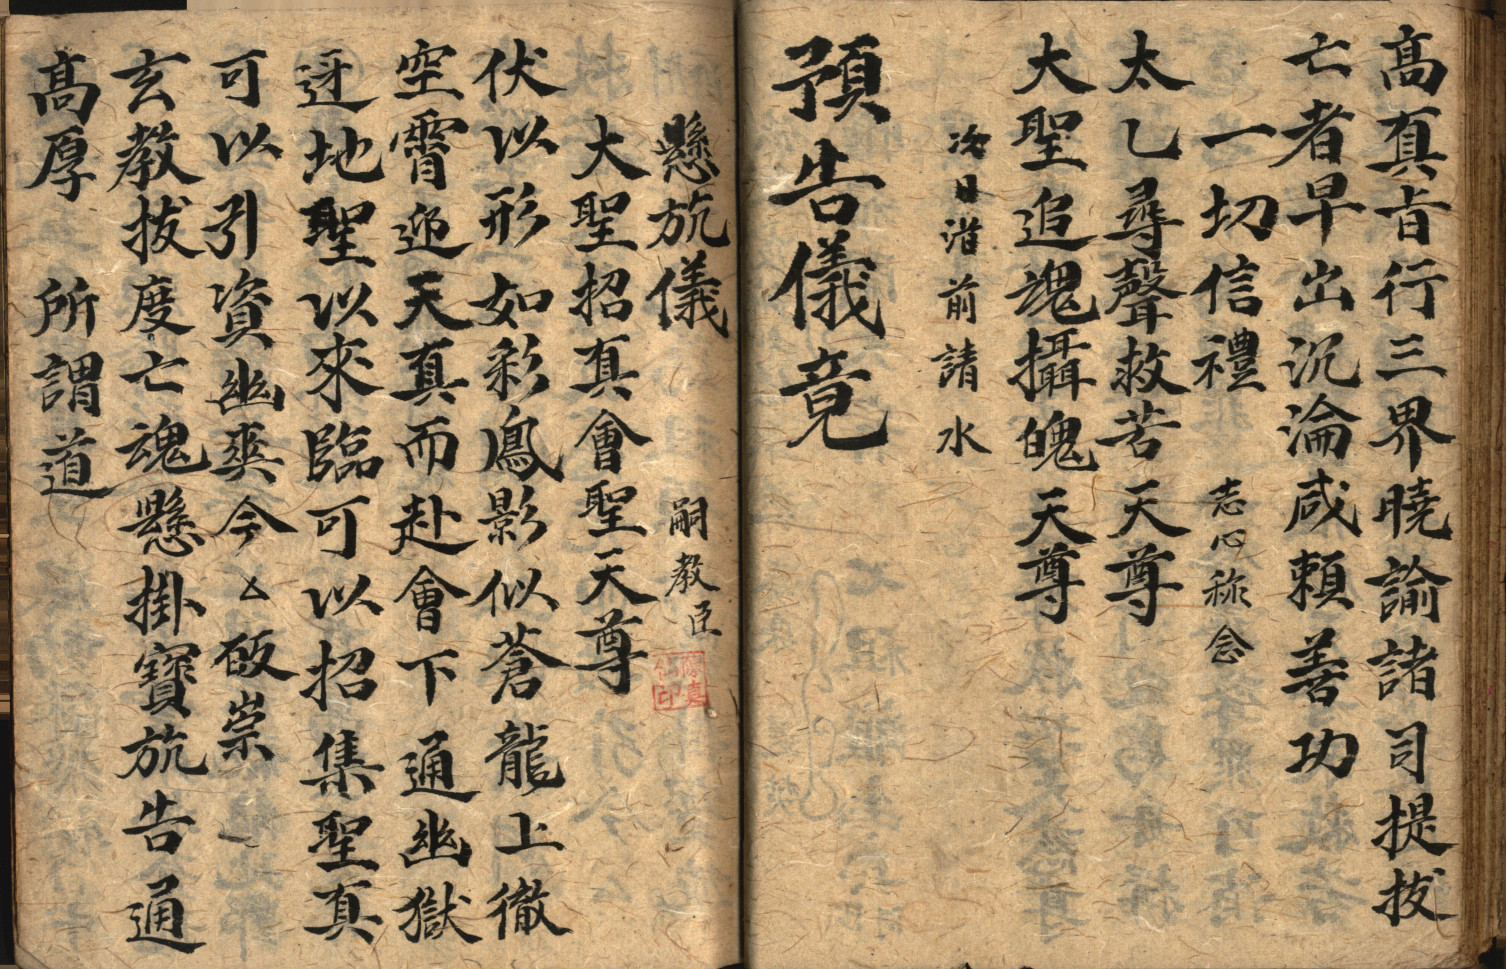 高真旨行三界曉諭諸司提拔
亡者早出沉淪咸頼善功
一切信禮 志心称念
太乙尋聲救苦天尊
大聖追魂攝魄天尊
次日沿前請水
預告儀竟
懸旊儀 嗣教臣
大聖招真會聖天尊
伏以形如彩鳳影似蒼龍上徹
空霄迎天真而赴會下通幽獄
迓地聖以來臨可以招集聖真
可以引資幽爽今厶皈崇
玄教拔度亡魂懸掛寶旊告通
高厚 所謂道